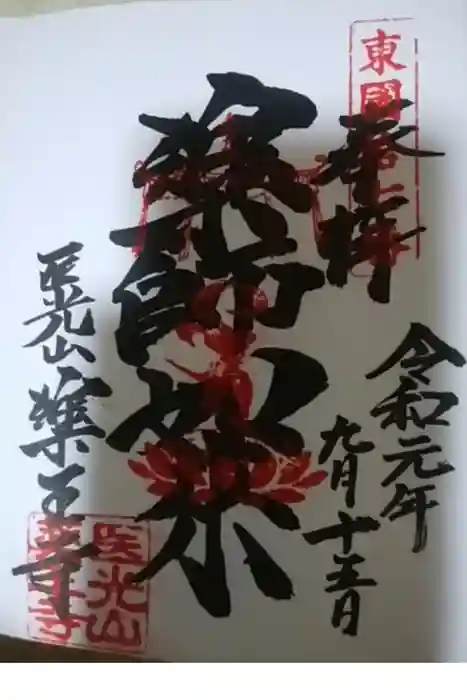 奉拝
令和元年
九月十五日
薬師祭
医光山薬王寺
医光山
薬王寺